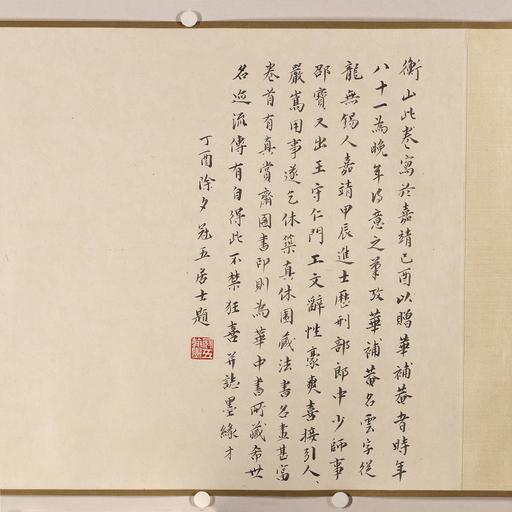 衡山此卷寫於嘉靖己酉以贈華補菴者時年
八十一為晚年得意之筆攷華補菴名雲字從
龍無錫人嘉靖甲辰進士歷刑部郎中少師事
邵寶又出王守仁門工文辭性豪爽喜接引人
嚴嵩用事遂乞休築真休園藏法書名畫甚富
卷首有真賞齋圖書印則為華中書所藏希世
名迹流傳有自得此不禁狂喜并誌墨緣才
丁酉除夕冠五居士題